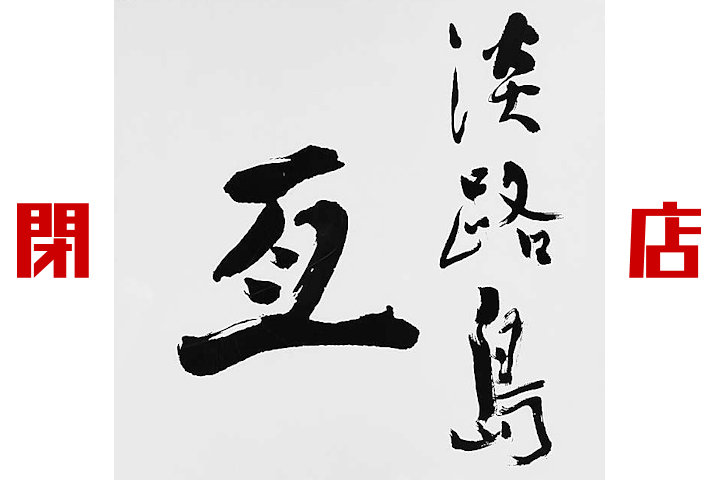 淡路島
亙
閉店